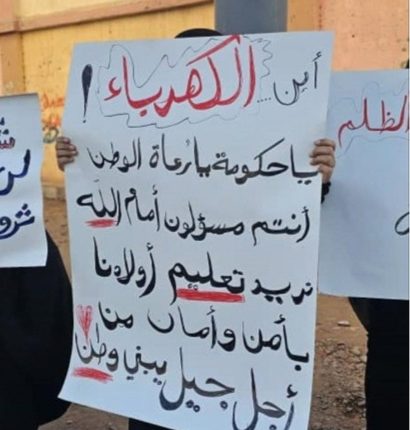 أين... الكهرباء!
ياحكومة يارعاة الوطن
أنتم مسؤلون أمام الله
نريد تعليم أولادنا
بأمن وأمان من
أجل جيل يبني وطن
الظلم